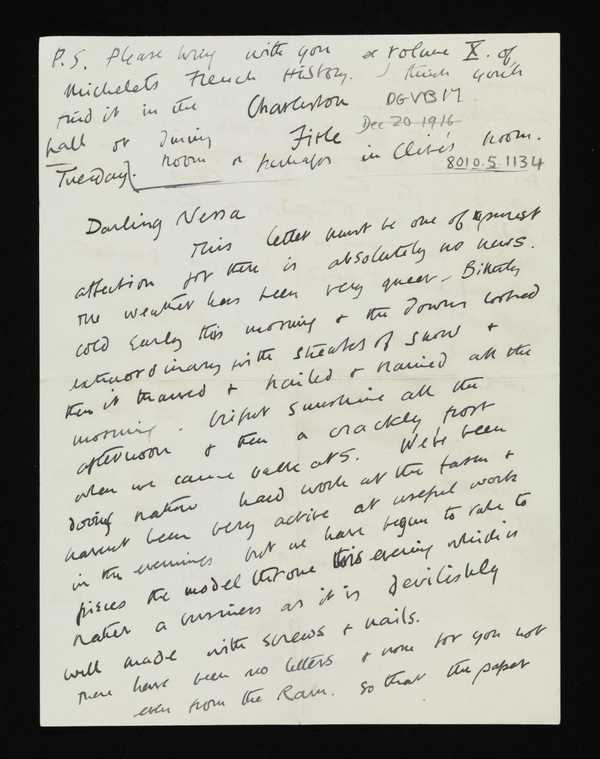 P.S. Please bring with you a volume X. of
Michelets French History. I think you'll
find it in the Charleston DG VB 17
hall or dining Firle Dec 20 1916
Tuesday. room or perhaps in Clive's room.
8010.5.1134
Darling Nessa
This letter must be one of purest
affection for there is absolutely no news.
The weather has been very queer - Bitterly
cold early this morning & the downs looked
extraordinary with streaks of snow &
then it thawed & hailed & rained all the
morning. bright sunshine all the
afternoon & then a crackly frost
when we came back at 5. We've been
doing rather hard work at the farm &
havent been very active at useful work
in the evenings but we have begun to take to
pieces the model this evening which is
rather a business as it is devilishly
well made with screws & nails.
There have been no letters & none for you not
even from the Ram. So that the paper